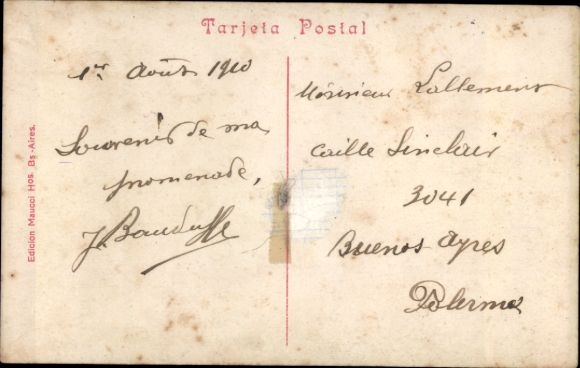 Tarjeta Postal
1er Août 1910
Souvenir de ma
promenade,
Monsieur Lallement
Caille Sinclair
3041
Buenos Ayres
Palermo
Edicion Maucci Hos. Bs-Aires.